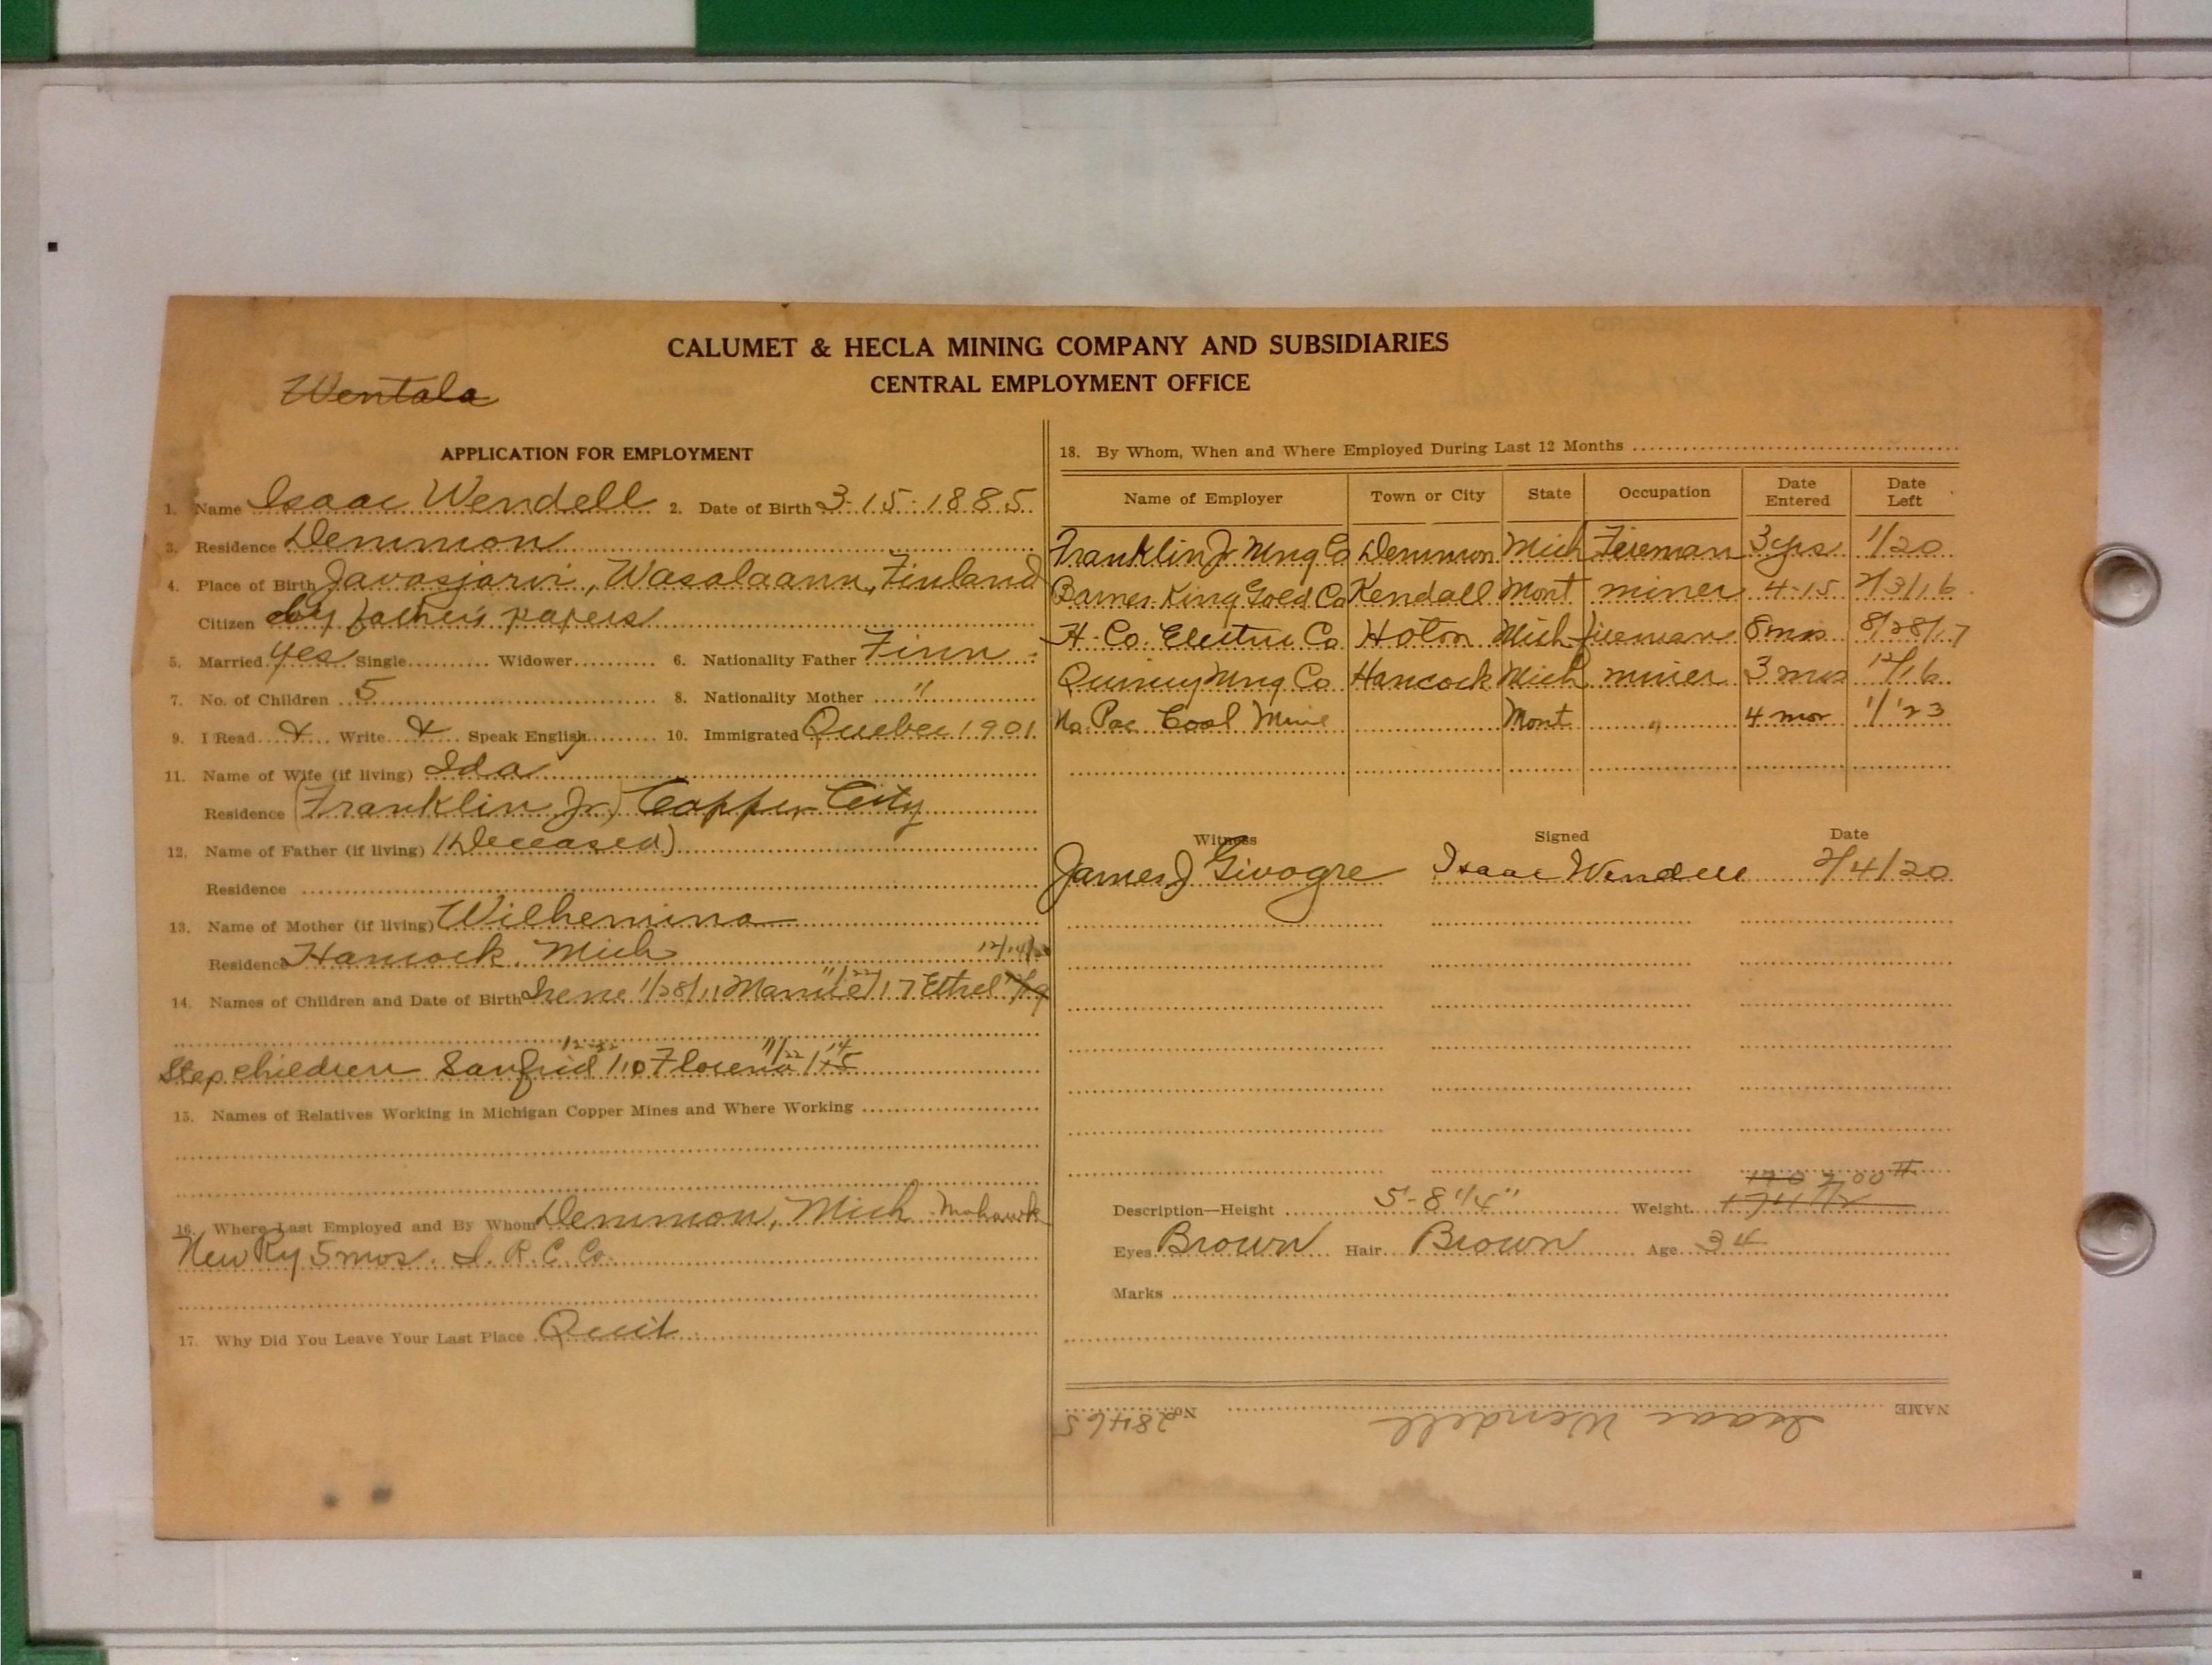 CALUMET & HECLA MINING COMPANY AND SUBSIDIARIES
CENTRAL EMPLOYMENT OFFICE
Wentala
APPLICATION FOR EMPLOYMENT
1. Name Isaac Wendell 2. Date of Birth 3-15-1885
3. Residence Demmon
4. Place of Birth Javasjarvi, Wasalaann, Finland
Citizen by father's papers
5. Married yes Single Widower 6. Nationality Father Finn
7. No. of Children 5 8. Nationality Mother "
9. I Read & Write & Speak English 10. Immigrated Quebec 1901
11. Name of Wife (if living) Ida
Residence (Franklin Jr.) Copper City
12. Name of Father (if living) (Deceased)
Residence
13. Name of Mother (if living) Wilhemina
Residence Hancock, Mich
12/14/
14. Names of Children and Date of Birth Irene 1/28/11 11/22/17 Ethel
Step children Sanfrid 12-22/10 Florena 11/22/14
15. Names of Relatives Working in Michigan Copper Mines and Where Working
16. Where Last Employed and By Whom Demmon, Mich Mohawk
New Ry 5 mos. I. R. C. Co.
17. Why Did You Leave Your Last Place Quit
18. By Whom, When and Where Employed During Last 12 Months
Name of Employer Town or City State Occupation Date Entered Date Left
Franklin Jr Mng Co Demmon Mich Fireman 3 yrs 1/20
Barnes King Gold Co Kendall Mont miner 4-15 2/3/16
H. Co. Electric Co Hoton Mich fireman 8 mos 8/28/17
Quincy Mng Co Hancock Mich miner 3 mos 12/16
No. Pac Coal Mine Mont " 4 mos 1/'23
Witness Signed Date
James J Givogre Isaac Wendell 2/4/20
170 200 #
Description—Height 5-8 1/4" Weight
Eyes Brown Hair Brown Age 34
Marks
NAME Isaac Wendell No. 28465